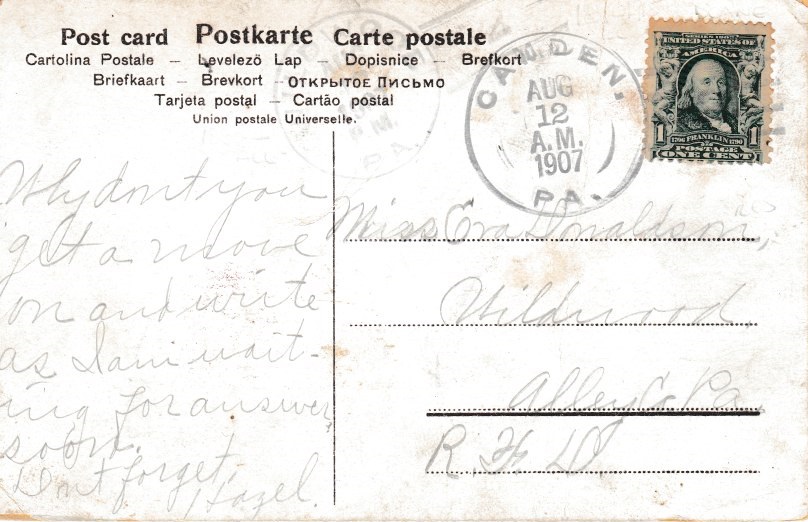 Post card Postkarte Carte postale
Cartolina Postale – Levelező Lap – Dopisnice – Brefkort
Briefkaart – Brevkort – Открытое Письмо
Tarjeta postal – Cartão postal
Union postale Universelle.
CAMDEN.
AUG
12
A.M.
1907
PA.
SERIES 1902
UNITED STATES OF
AMERICA
1 1
1706 FRANKLIN 1790
POSTAGE
ONE CENT
Why dont you
get a move
on and write
as I am wait-
ing for answer
soon.
Dont forget,
Hazel.
Miss Eva Donaldson,
Wildwood,
Alleg. Co. Pa.
R. F. D.
P.M.
PA.